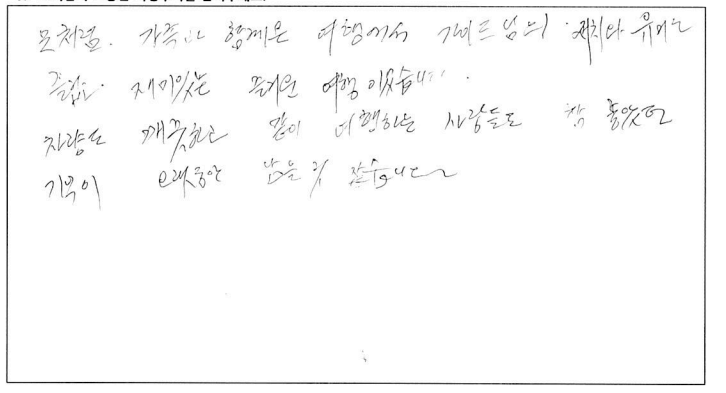 모처럼. 가족과 함께온 여행에서 가이드님의 재치와 유머는
즐겁고. 재미있는 즐거운 여행 이었습니다.
차량도 깨끗하고 같이 여행하는 사람들도 참 좋았던
기억이 오랫동안 남을 것 같습니다